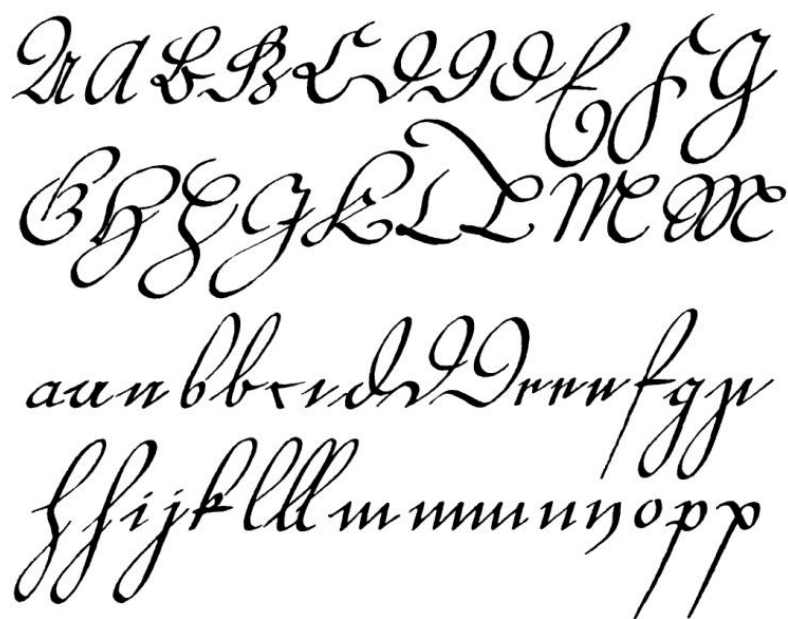 A A B B C D D D E F G
G H H J K L L M M
a a a b b c c d d d e e e f g g
h h i j k l l l m m m n n o p p